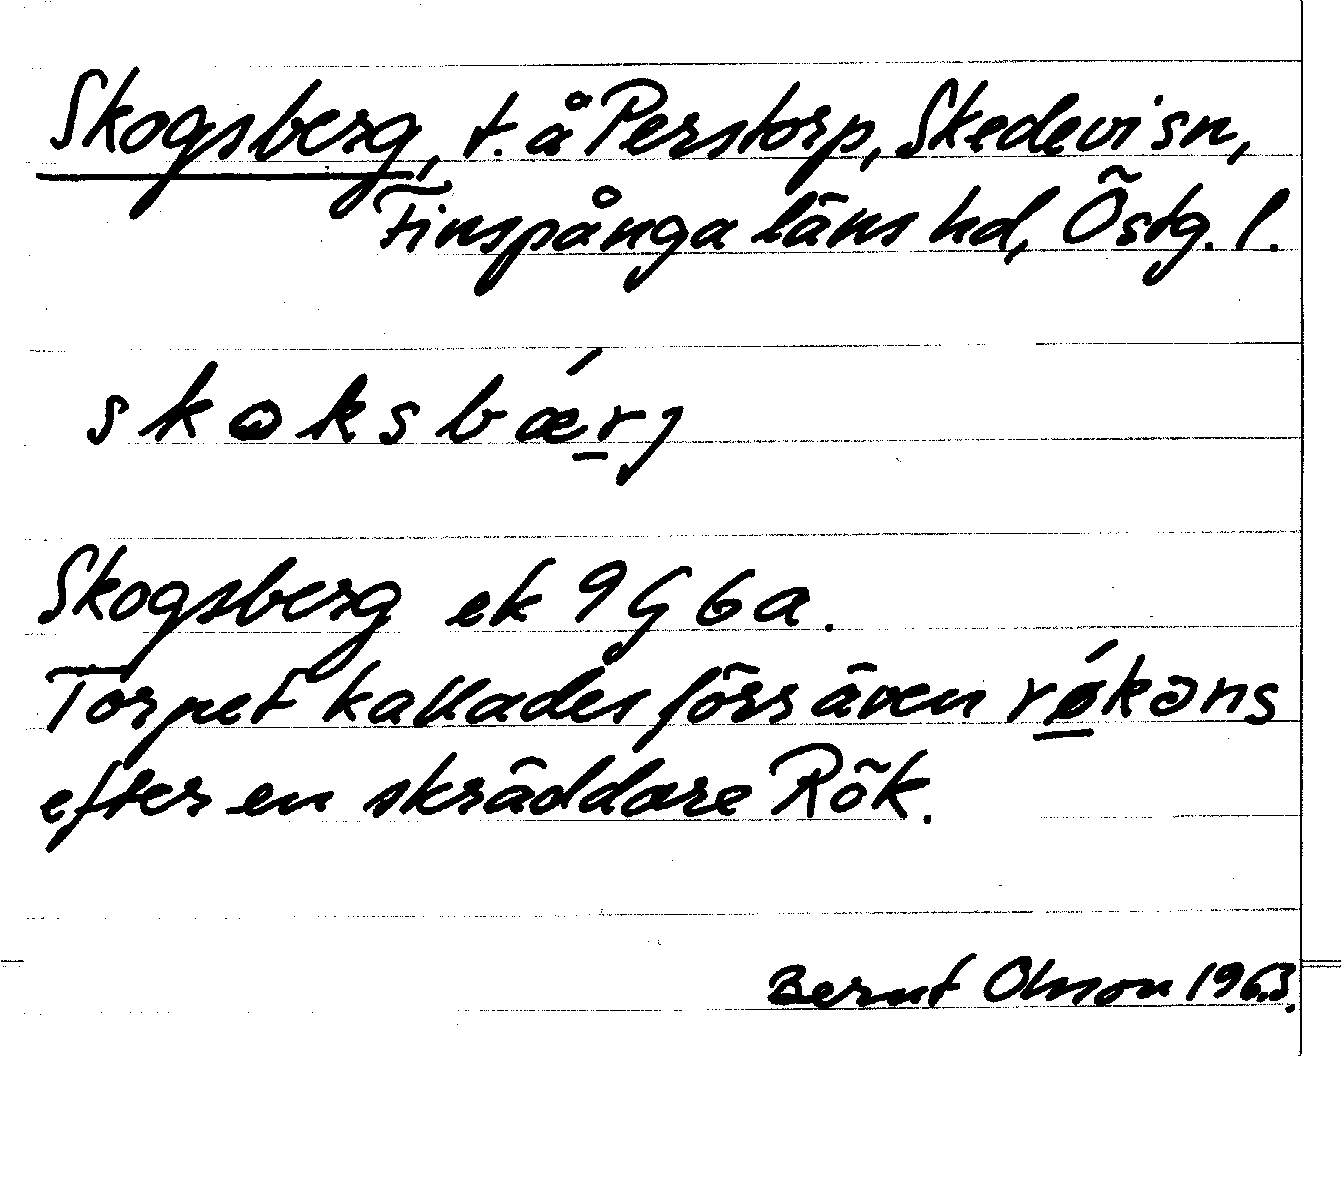 Skogsberg, t. å Perstorp, Skedevi sn,
Finspånga läns hd, Östg. l.
skɷksbǽ̱rj
Skogsberg ek 9 G 6 a.
Torpet kallades förr även rǿ̱kəns
efter en skräddare Rök.
Bernt Olsson 1963.